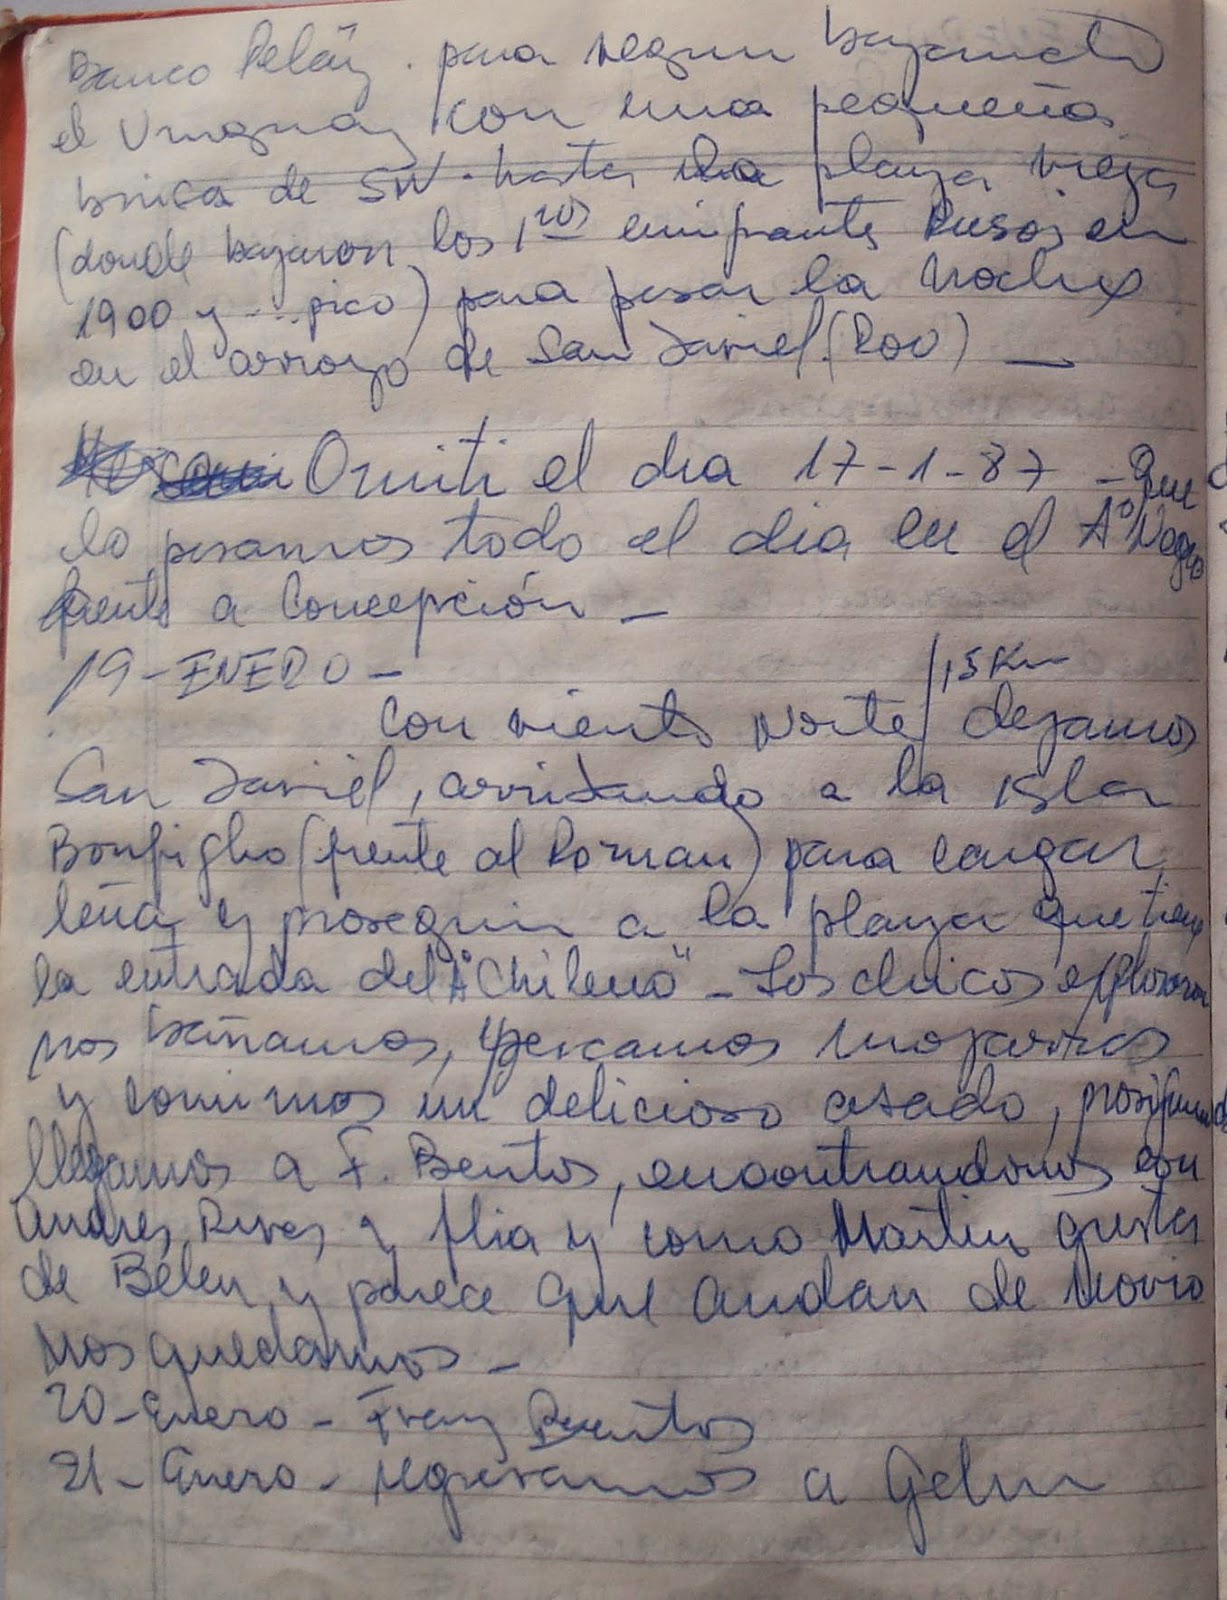 Banco Peláy. para seguir bajando
el Uruguay con una pequeña
brisa de SW. hasta la playa vieja
(donde bajaron los 1ros emigrantes Rusos en
1900 y ... pico) para pasar la noche
en el arroyo de San Javiel. (ROU) —
Omiti el dia 17-1-87 - Que
lo pasamos todo el dia en el A° Negro
frente a Concepción -
19 - ENERO -
15 Km
con viento Norte / dejamos
San Javiel, arribando a la isla
Bonfiglio (frente al Roman) para cargar
leña y proseguir a la playa que tiene
la entrada del A° "Chileno" - Los chicos exploraron
nos bañamos, pescamos mojarras
y comimos un delicioso asado, prosiguiendo
llegamos a F. Bentos, encontrandonos con
Andres Rivas y flia y como Martin gusta
de Belen y parece que andan de novio
nos quedamos -
20 - Enero - Fray Bentos
21 - Enero - regresamos a